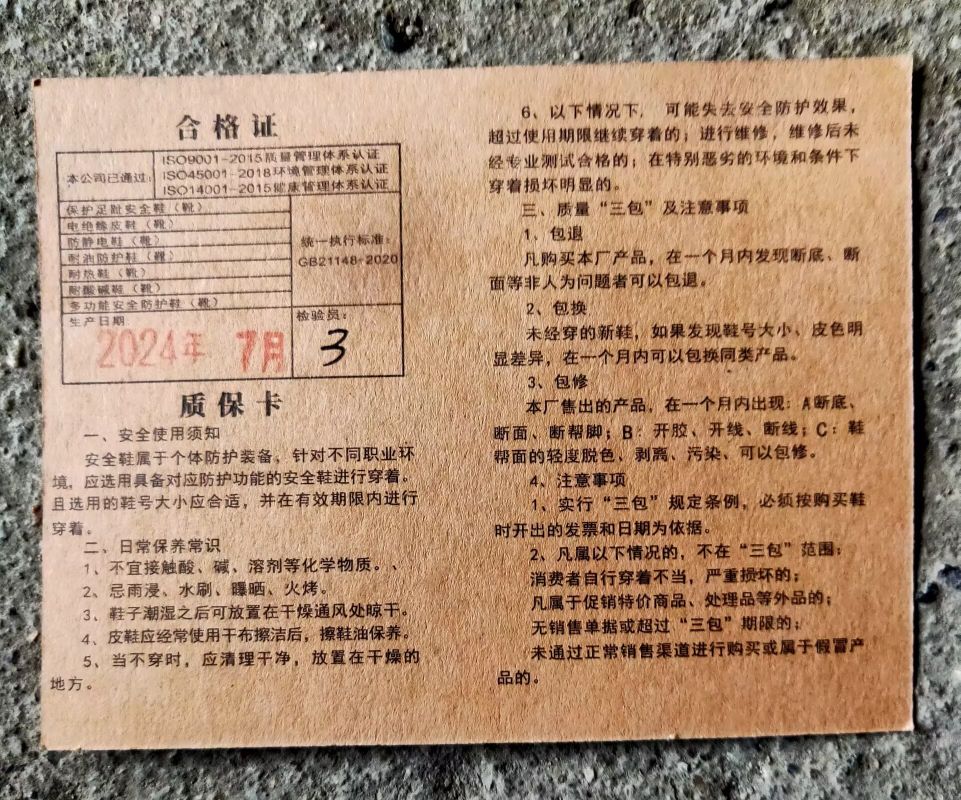 合格证
本公司已通过：
ISO9001-2015质量管理体系认证
ISO45001-2018环境管理体系认证
ISO14001-2015健康管理体系认证
保护足趾安全鞋（靴）
电绝缘皮鞋（靴）
防静电鞋（靴）
耐油防护鞋（靴）
耐热鞋（靴）
耐酸碱鞋（靴）
多功能安全防护鞋（靴）
统一执行标准：
GB21148-2020
生产日期
2024年 7月
检验员：
3
质保卡
一、安全使用须知
安全鞋属于个体防护装备，针对不同职业环
境，应选用具备对应防护功能的安全鞋进行穿着。
且选用的鞋号大小应合适，并在有效期限内进行
穿着。
二、日常保养常识
1、不宜接触酸、碱、溶剂等化学物质。、
2、忌雨浸、水刷、曝晒、火烤。
3、鞋子潮湿之后可放置在干燥通风处晾干。
4、皮鞋应经常使用干布擦洁后，擦鞋油保养。
5、当不穿时，应清理干净，放置在干燥的
地方。
6、以下情况下，可能失去安全防护效果，
超过使用期限继续穿着的；进行维修，维修后未
经专业测试合格的；在特别恶劣的环境和条件下
穿着损坏明显的。
三、质量“三包”及注意事项
1、包退
凡购买本厂产品，在一个月内发现断底、断
面等非人为问题者可以包退。
2、包换
未经穿的新鞋，如果发现鞋号大小、皮色明
显差异，在一个月内可以包换同类产品。
3、包修
本厂售出的产品，在一个月内出现：A断底、
断面、断帮脚；B：开胶、开线、断线；C：鞋
帮面的轻度脱色、剥离、污染、可以包修。
4、注意事项
1、实行“三包”规定条例，必须按购买鞋
时开出的发票和日期为依据。
2、凡属以下情况的，不在“三包”范围；
消费者自行穿着不当，严重损坏的；
凡属于促销特价商品、处理品等外品的；
无销售单据或超过“三包”期限的；
未通过正常销售渠道进行购买或属于假冒产
品的。